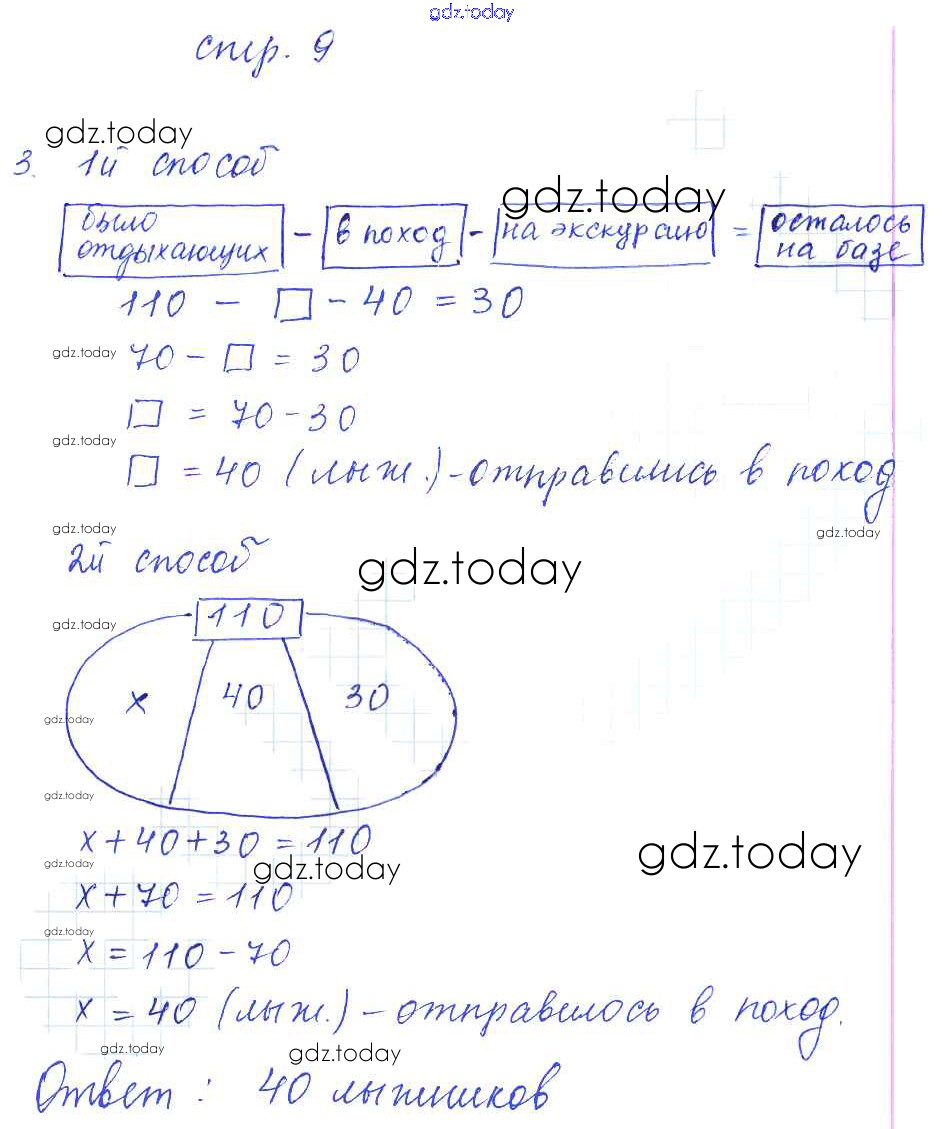 gdz.today
стр. 9
gdz.today
3. 1й способ
gdz.today
было отдыхающих - в поход - на экскурсию = осталось на базе
110 - □ - 40 = 30
gdz.today 70 - □ = 30
□ = 70 - 30
gdz.today
□ = 40 (лыж.) - отправились в поход
gdz.today
gdz.today
2й способ
gdz.today
110
gdz.today
x 40 30
gdz.today
gdz.today
x + 40 + 30 = 110
gdz.today
gdz.today
gdz.today
x + 70 = 110
gdz.today
x = 110 - 70
x = 40 (лыж.) - отправилось в поход.
gdz.today
gdz.today
Ответ: 40 лыжников